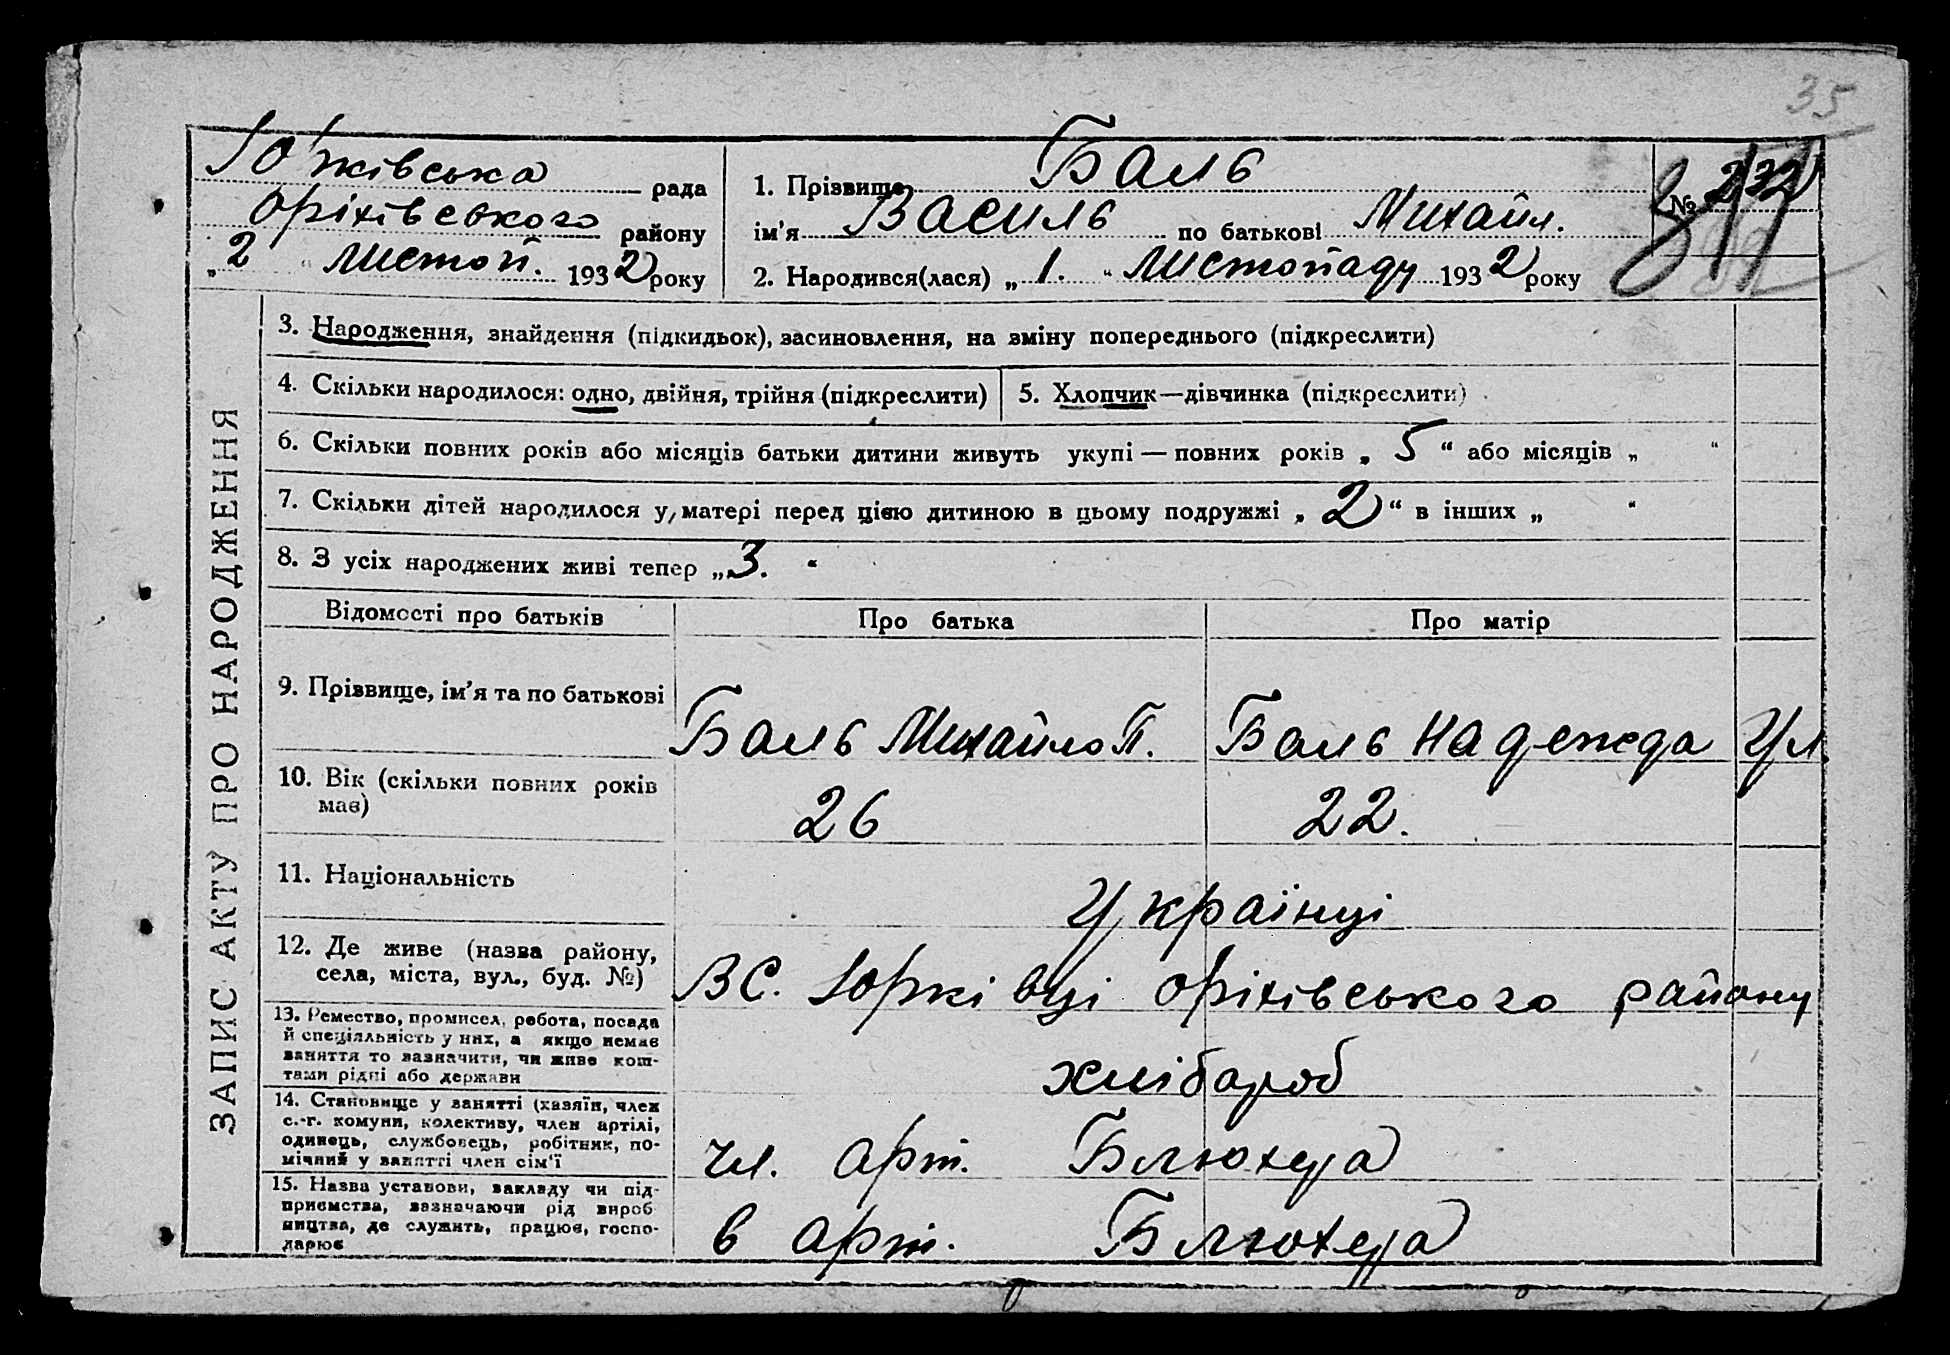 35
Юрківська рада
Оріхівського району
„ 2 “ листоп. 1932 року
1. Прізвище Баль
ім’я Василь по батькові Михайл.
2. Народився(лася) „ 1. “ Листопаду 1932 року
№ 232
ЗАПИС АКТУ ПРО НАРОДЖЕННЯ
3. Народження, знайдення (підкидьок), засиновлення, на зміну попереднього (підкреслити)
4. Скільки народилося: одно, двійня, трійня (підкреслити)
5. Хлопчик—дівчинка (підкреслити)
6. Скільки повних років або місяців батьки дитини живуть укупі — повних років „ 5 “ або місяців „ “
7. Скільки дітей народилося у матері перед цією дитиною в цьому подружжі „ 2 “ в інших „ “
8. З усіх народжених живі тепер „ 3. “
Відомості про батьків Про батька Про матір
9. Прізвище, ім’я та по батькові
Баль Михайло П. Баль Надежда Ул.
10. Вік (скільки повних років
має)
26 22.
11. Національність
Українці
12. Де живе (назва району,
села, міста, вул., буд. №)
В С. Юрківці Оріхівського району
13. Ремество, промисел, робота, посада
й спеціяльність у них, а якщо немає
заняття то зазначити, чи живе кош-
тами рідні або держави
хлібароб
14. Становище у занятті (хазяїн, член
с.-г. комуни, колективу, член артілі,
одинець, службовець, робітник, по-
мічний у занятті член сім’ї
чл. арт. Блюхера
15. Назва установи, закладу чи під-
приємства, зазначаючи рід вироб
ництва, де служить, працює, госпо-
дарює
в арт. Блюхера